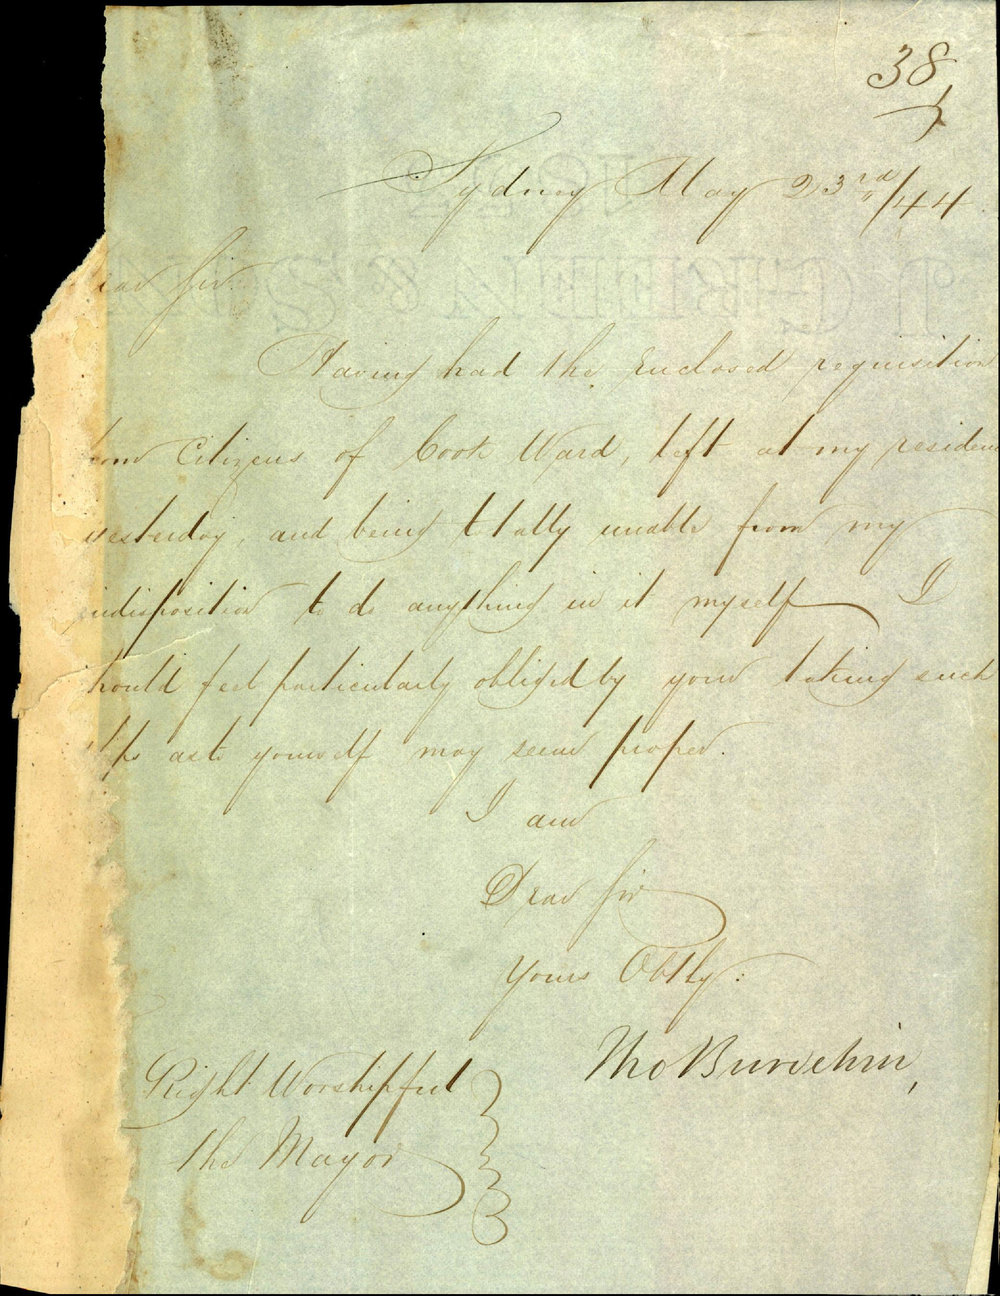 38
Sydney May 23rd/44
ear Sir
Having had the Enclosed requisition
Citizens of Cook Ward, left at my residenc
yesterday, and being totally unable from my
indisposition to do anything in it myself I
hould feel particularly obliged by your taking such
as to yourself may seem proper.
I am
Dear Sir
Yours Obtly:
Tho Burdekin,
Right Worshipful
the Mayor
J GREEN & S